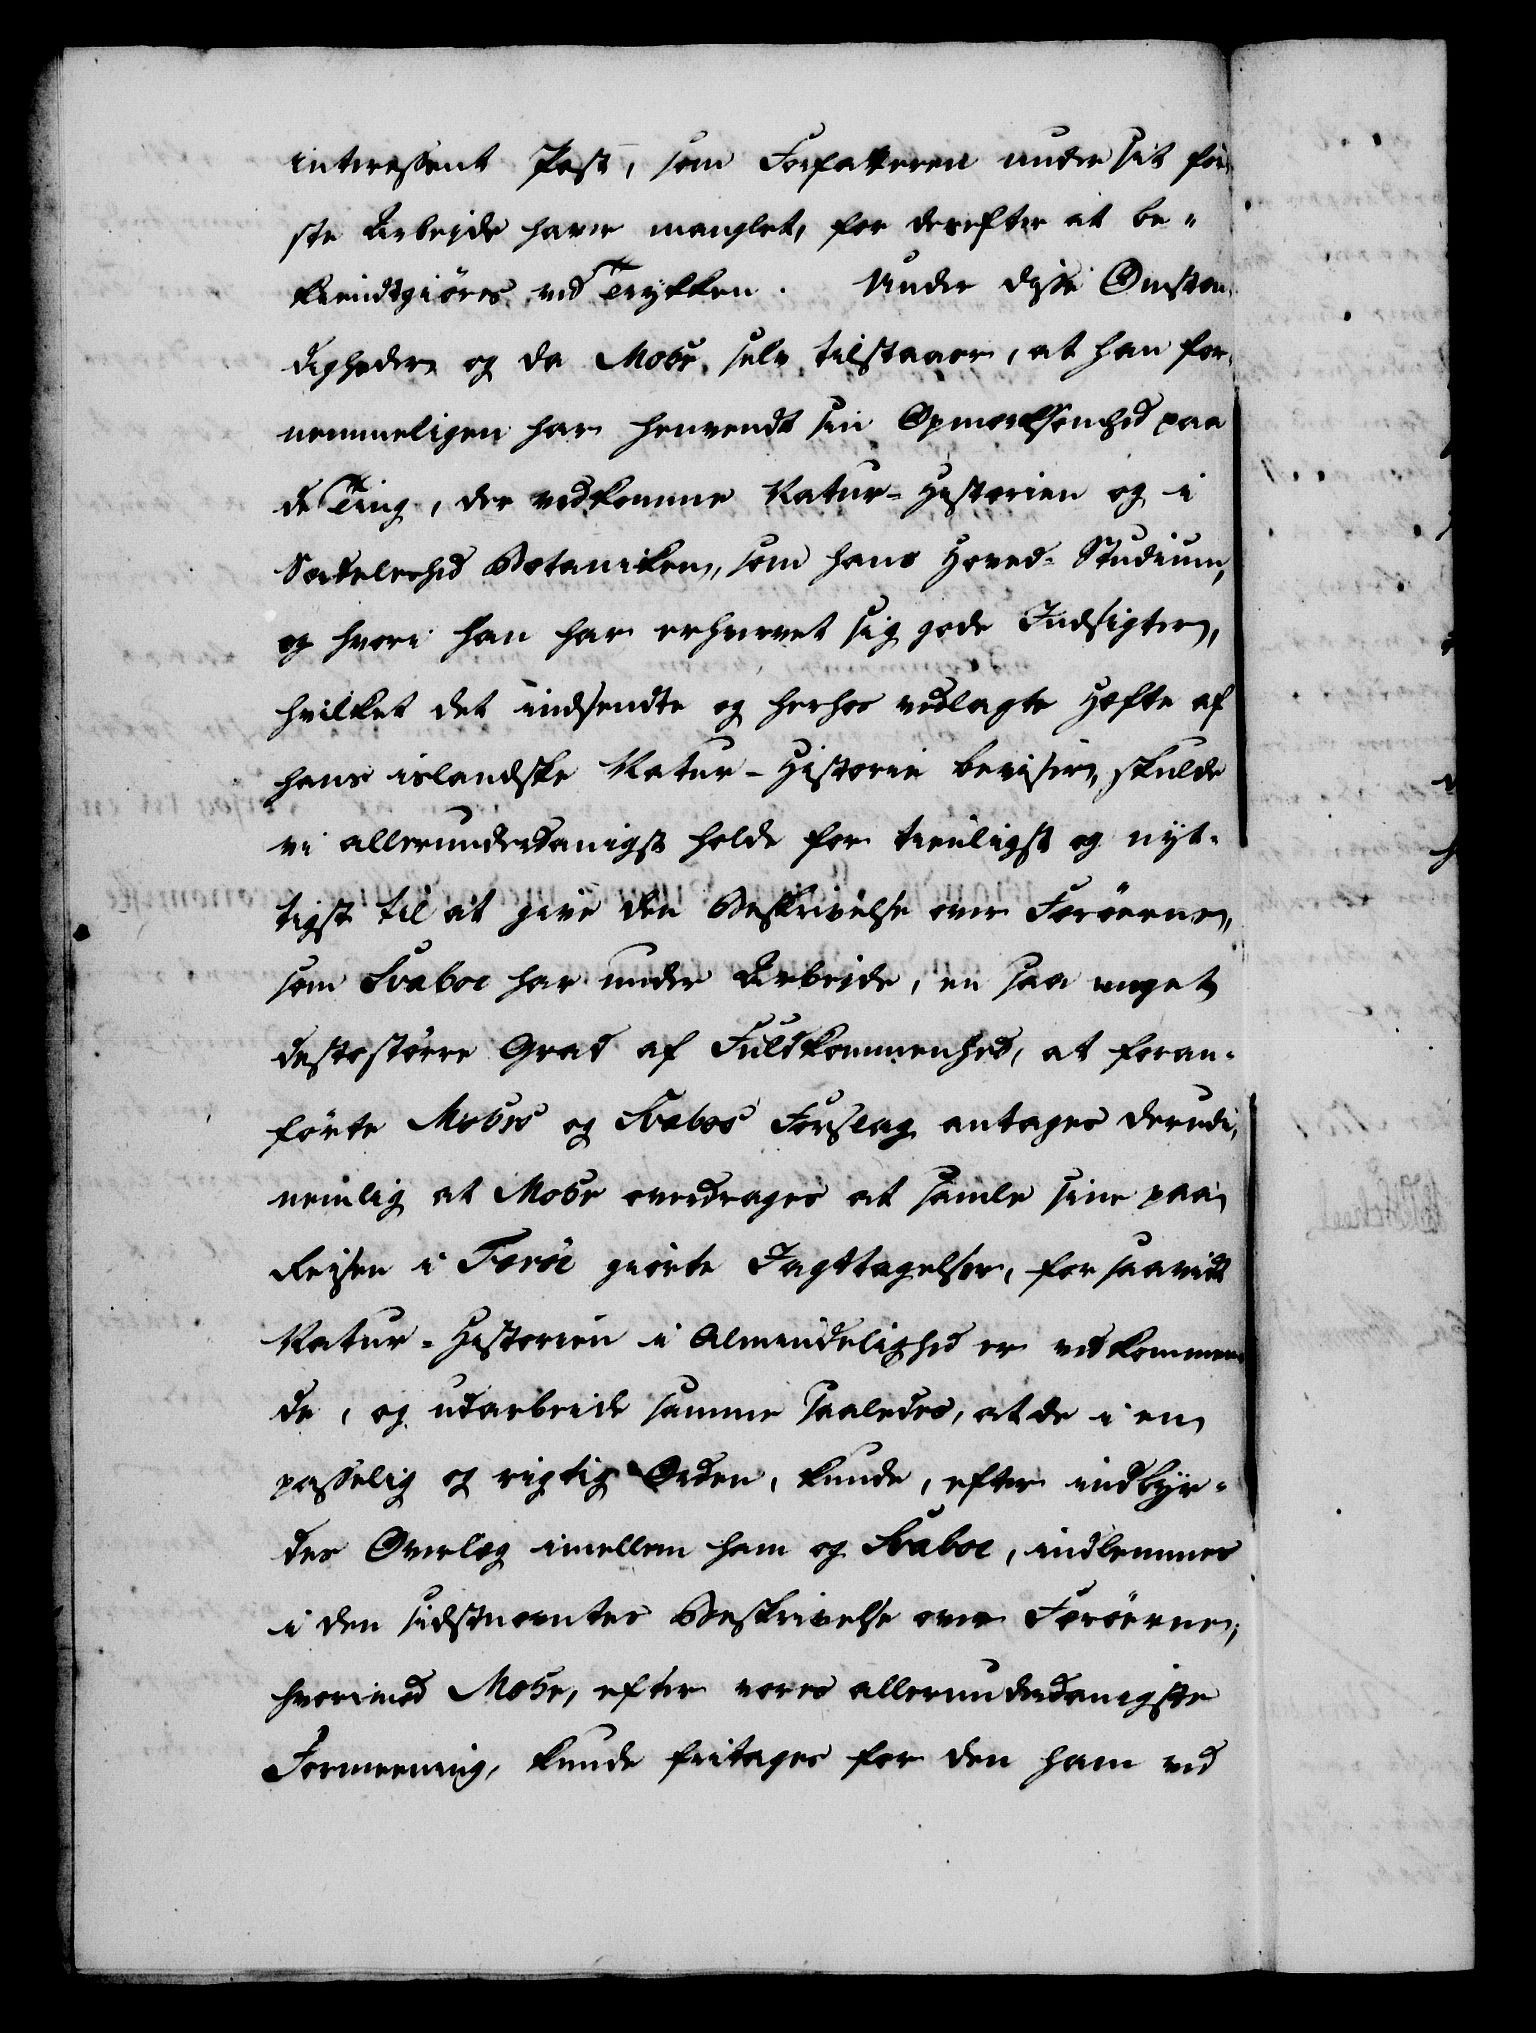 interessent Post, som Forfatteren under sit før-
ste Arbejde havde manglet, for derefter at be-
kiendtgiöres ved Trykken. Under disse Omstæn-
digheder, og da Mohr selv tilstaaer, at han for-
nemmeligen har henvendt sin Opmærksomhed paa
de Ting, der vedkomme Natur-Historien og i
Særdeleshed Botaniken, som hans Hoved-Studium,
og hvori han har erhvervet sig gode Indsigter,
hvilket det indsendte og herhos vedlagte Hefte af
hans islandske Natur-Historie beviser, skulde
vi allerunderdanigst holde for tienligst og nyt-
tigst til at give den Beskrivelse over Færöerne,
som Svaboe har under Arbejde, en saa meget
destostörre Grad af Fuldkommenhed, at foran-
förte Mohrs og Svabos Forslag antages derudi,
nemlig at Mohr overdrages at samle sine paa
Reisen i Færöe giörte Jagttagelser, for saavidt
Natur-Historien i Almindelighed er vedkommen-
de, og udarbeide samme saaledes, at de i en
passelig og rigtig Orden, kunde, efter indbyr-
des Overlæg imellem ham og Svaboe, indlemmes
i den sidstnævntes Beskrivelse over Færöerne,
hvorimod Mohr, efter vores allerunderdanigste
Formeening, kunde fritages for den ham ved